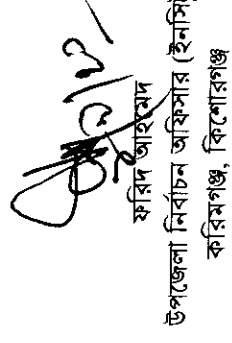 ফরিদ আহমেদ
উপজেলা নির্বাচন অফিসার (ইনসি
করিমগঞ্জ, কিশোরগঞ্জ